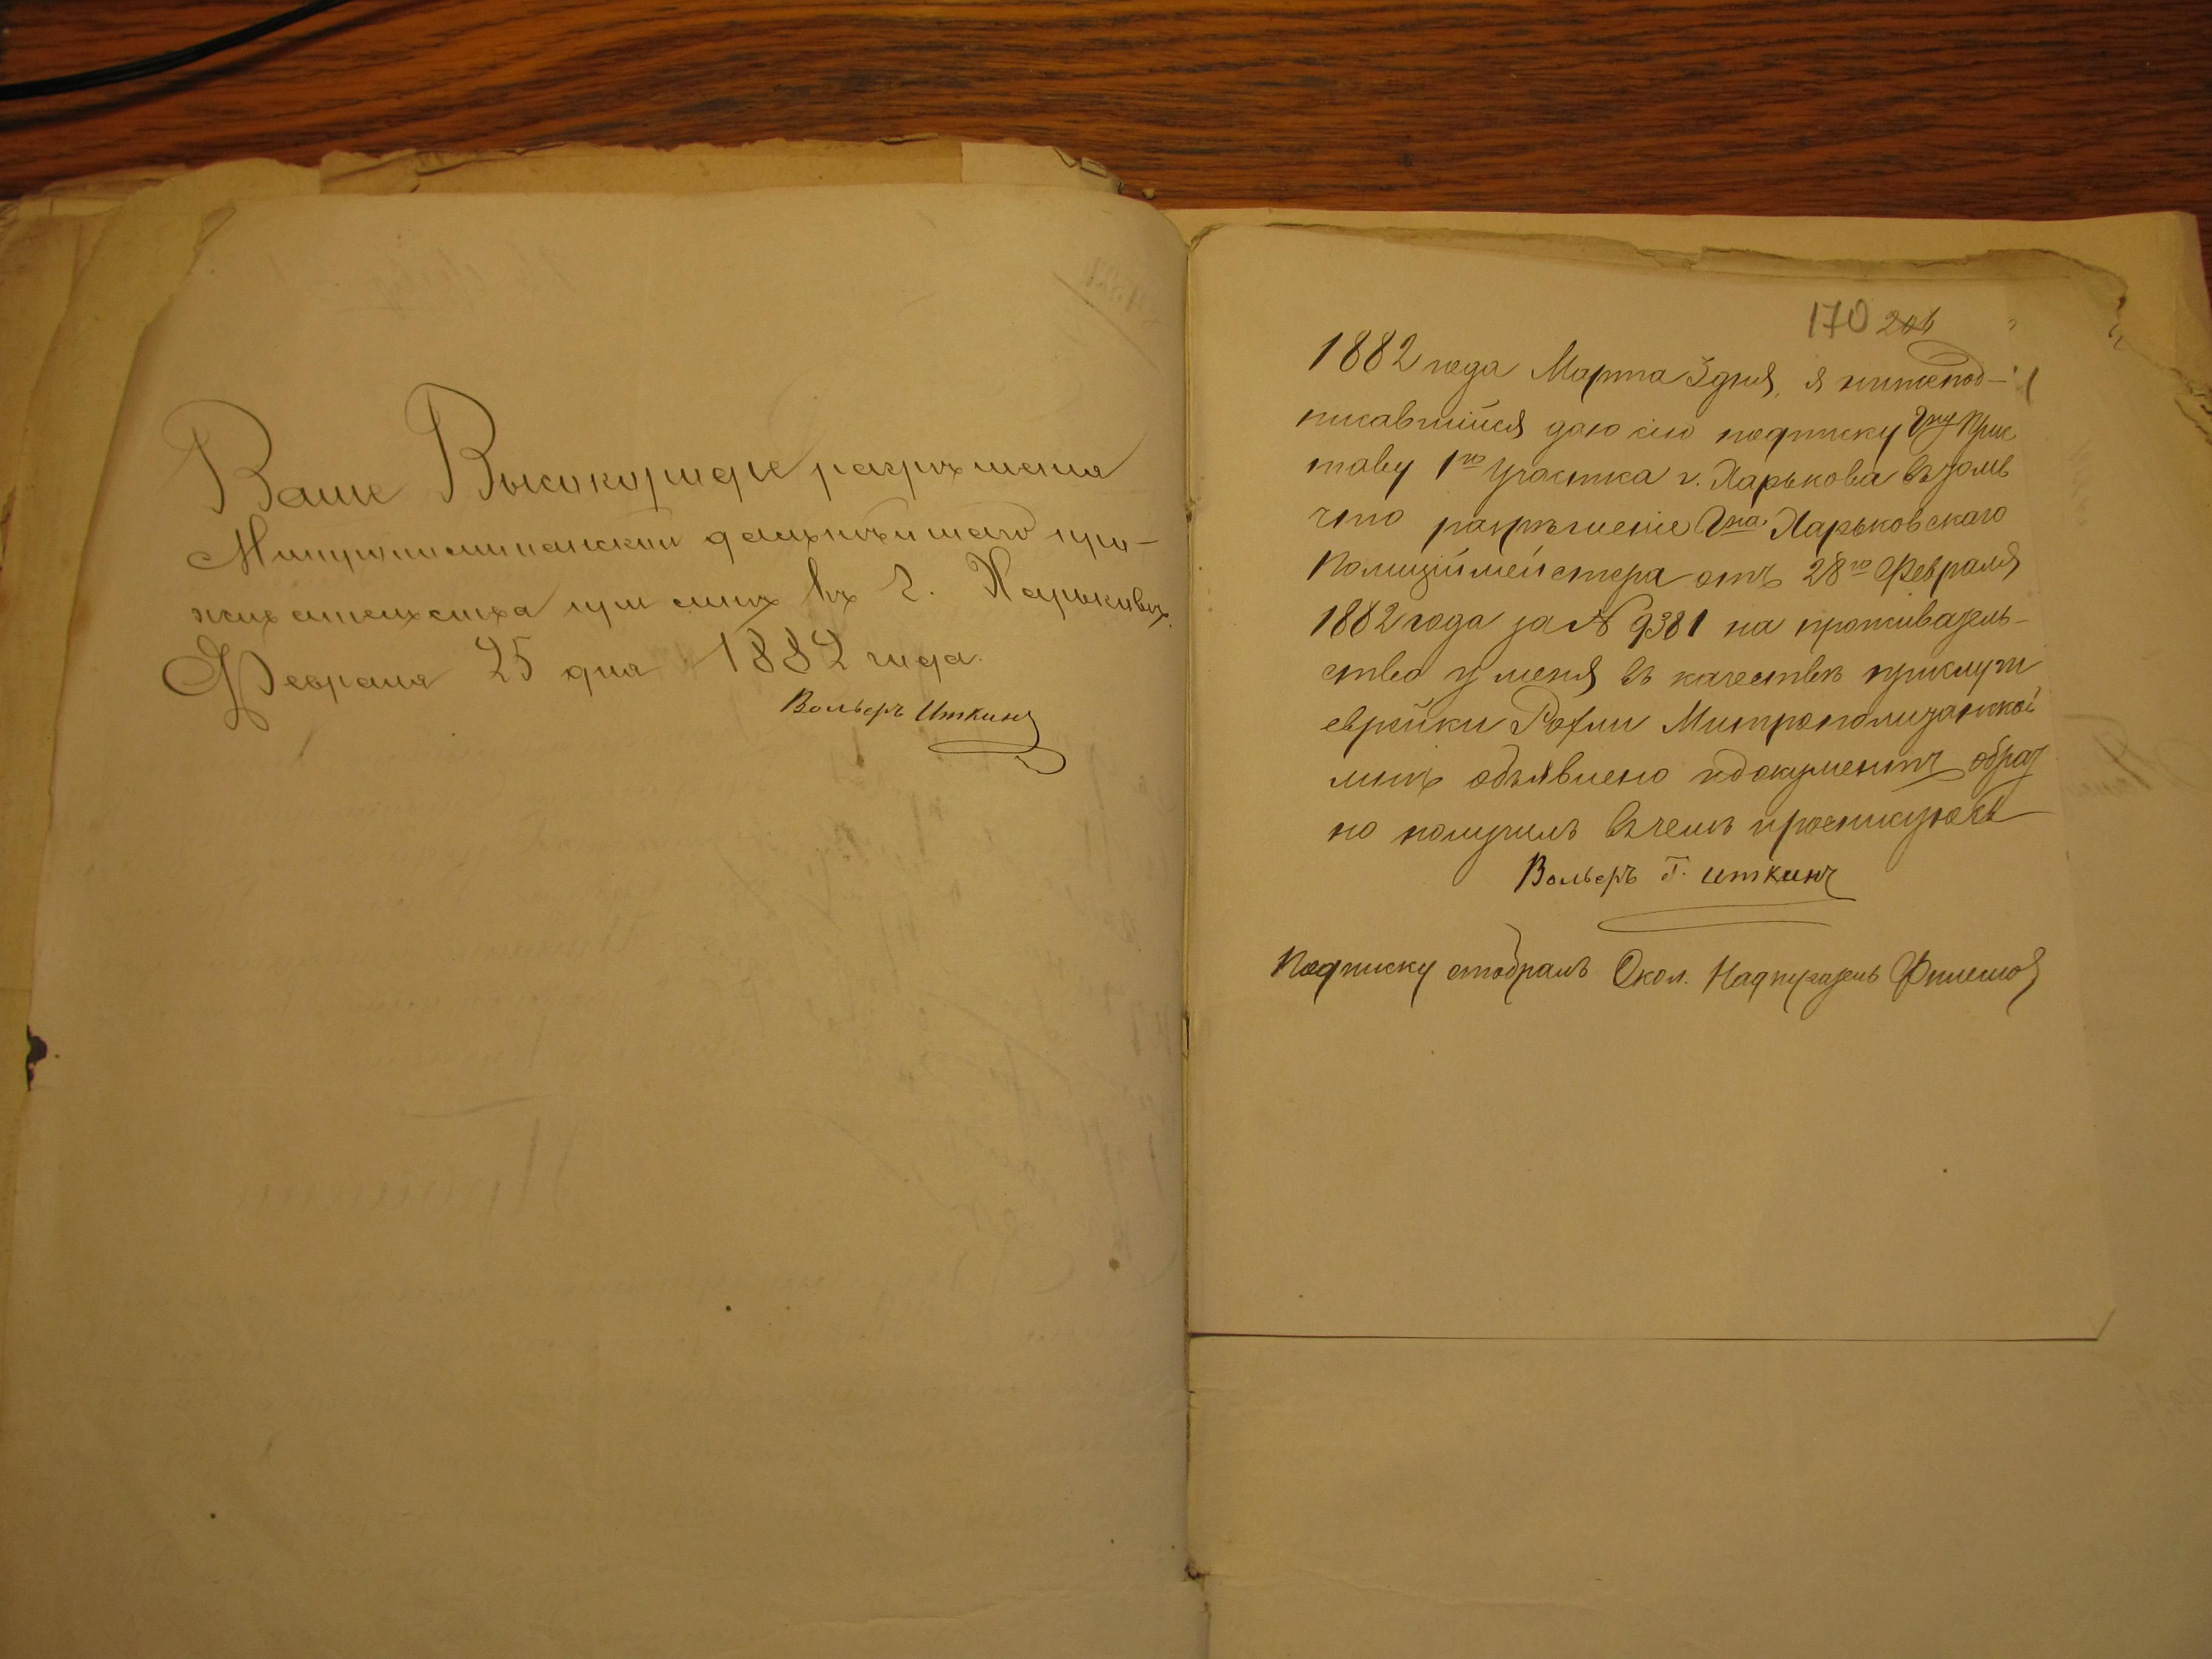 Ваше Высокородіе разрѣшенія
Митрополитанской далнѣйшаго про-
жительства при мнѣ въ г. Харьковѣ.
Февраля 25 дня 1882 года.
Вольфъ Иткинъ
170 206
1882 года Марта 3 дня, я нижепод-
писавшійся даю сію подписку Гну Прис
таву 1го Участка г. Харькова въ томъ
что разрѣшеніе Гна Харьковскаго
Полиціймейстера отъ 28го Февраля
1882 года за № 9381 на прожитель-
ство у меня въ качествѣ прислуги
еврейки Рохли Митрополитанской
мнѣ объявлено и документъ обрат
но получилъ въ чемъ и росписуюсь
Вольфъ Г. Иткинъ
Подписку отобралъ Окол. Надзиратель